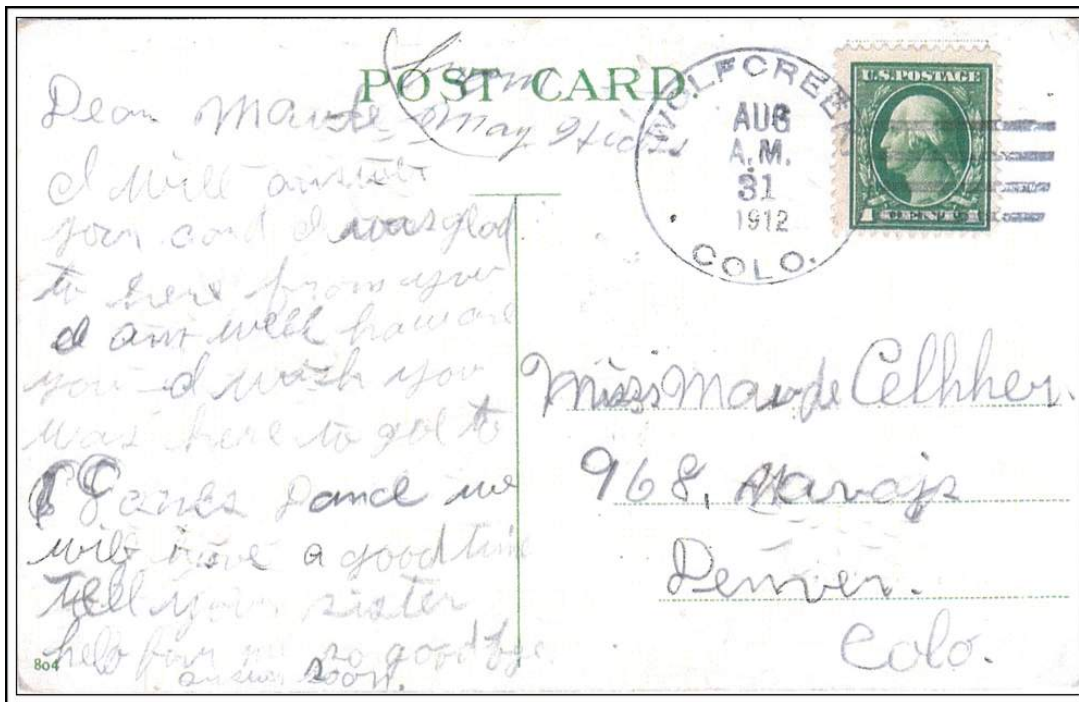 POST CARD
from
May
Dear Maude
I will answer
your card I was glad
to here from you
I am well how are
you I wish you
was here to go to
Dance we
will have a good time
tell your sister
hello for me so good bye
answer soon.
WOLFCREEK
AUG
A.M.
31
1912
COLO.
U.S. POSTAGE
1 CENT 1
Miss Maude
968, Navajo
Denver.
Colo.
804